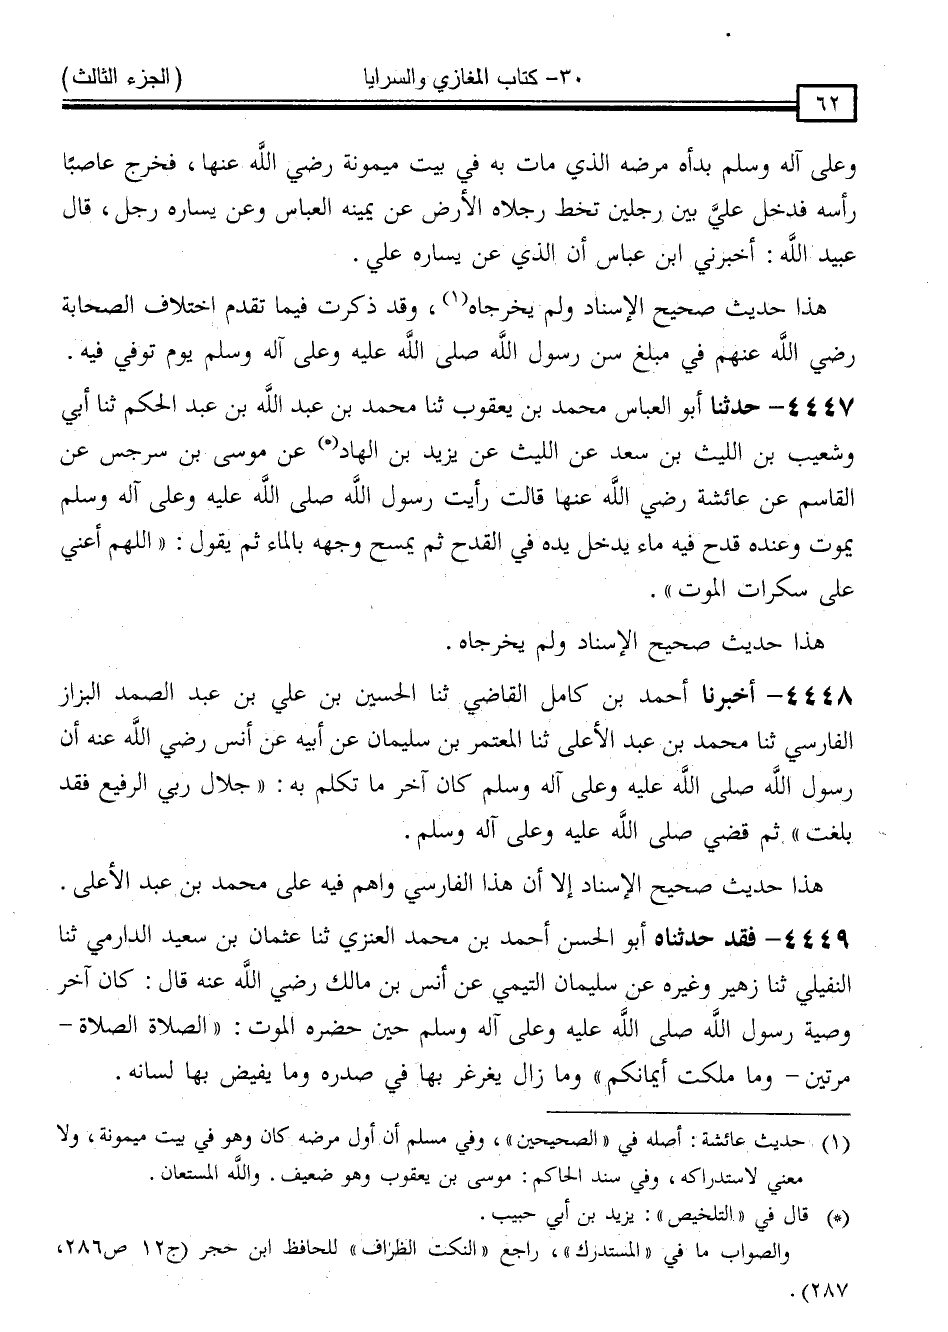 ٣٠- كتاب المغازي والسرايا (الجزء الثالث)
٦٢
وعلى آله وسلم بدأه مرضه الذي مات به في بيت ميمونة رضي اللَّه عنها، فخرج عاصبًا
رأسه فدخل عليَّ بين رجلين تخط رجلاه الأرض عن يمينه العباس وعن يساره رجل، قال
عبيد اللَّه : أخبرني ابن عباس أن الذي عن يساره علي .
هذا حديث صحيح الإسناد ولم يخرجاه(١)، وقد ذكرت فيما تقدم اختلاف الصحابة
رضي اللَّه عنهم في مبلغ سن رسول اللَّه صلى اللَّه عليه وعلى آله وسلم يوم توفي فيه .
٤٤٤٧- حدثنا أبو العباس محمد بن يعقوب ثنا محمد بن عبد اللَّه بن عبد الحكم ثنا أبي
وشعيب بن الليث بن سعد عن الليث عن يزيد بن الهاد(*) عن موسى بن سرجس عن
القاسم عن عائشة رضي اللَّه عنها قالت رأيت رسول اللَّه صلى اللَّه عليه وعلى آله وسلم
يموت وعنده قدح فيه ماء يدخل يده في القدح ثم يمسح وجهه بالماء ثم يقول : « اللهم أعني
على سكرات الموت » .
هذا حديث صحيح الإسناد ولم يخرجاه .
٤٤٤٨- أخبرنا أحمد بن كامل القاضي ثنا الحسين بن علي بن عبد الصمد البزاز
الفارسي ثنا محمد بن عبد الأعلى ثنا المعتمر بن سليمان عن أبيه عن أنس رضي اللَّه عنه أن
رسول اللَّه صلى اللَّه عليه وعلى آله وسلم كان آخر ما تكلم به : « جلال ربي الرفيع فقد
بلغت » ثم قضي صلى اللَّه عليه وعلى آله وسلم.
هذا حديث صحيح الإسناد إلا أن هذا الفارسي واهم فيه على محمد بن عبد الأعلى .
٤٤٤٩- فقد حدثناه أبو الحسن أحمد بن محمد العنزي ثنا عثمان بن سعيد الدارمي ثنا
النفيلي ثنا زهير وغيره عن سليمان التيمي عن أنس بن مالك رضي اللَّه عنه قال : كان آخر
وصية رسول اللَّه صلى اللَّه عليه وعلى آله وسلم حين حضره الموت : « الصلاة الصلاة -
مرتين - وما ملكت أيمانكم » وما زال يغرغر بها في صدره وما يفيض بها لسانه .
(١) حديث عائشة : أصله في «الصحيحين» ، وفي مسلم أن أول مرضه كان وهو في بيت ميمونة ، ولا
معني لاستدراكه ، وفي سند الحاكم : موسى بن يعقوب وهو ضعيف . واللَّه المستعان .
(*) قال في «التلخيص» : يزيد بن أبي حبيب .
والصواب ما في «المستدرك» ، راجع «النكت الظراف» للحافظ ابن حجر (ج١٢ ص٢٨٦،
٢٨٧) .